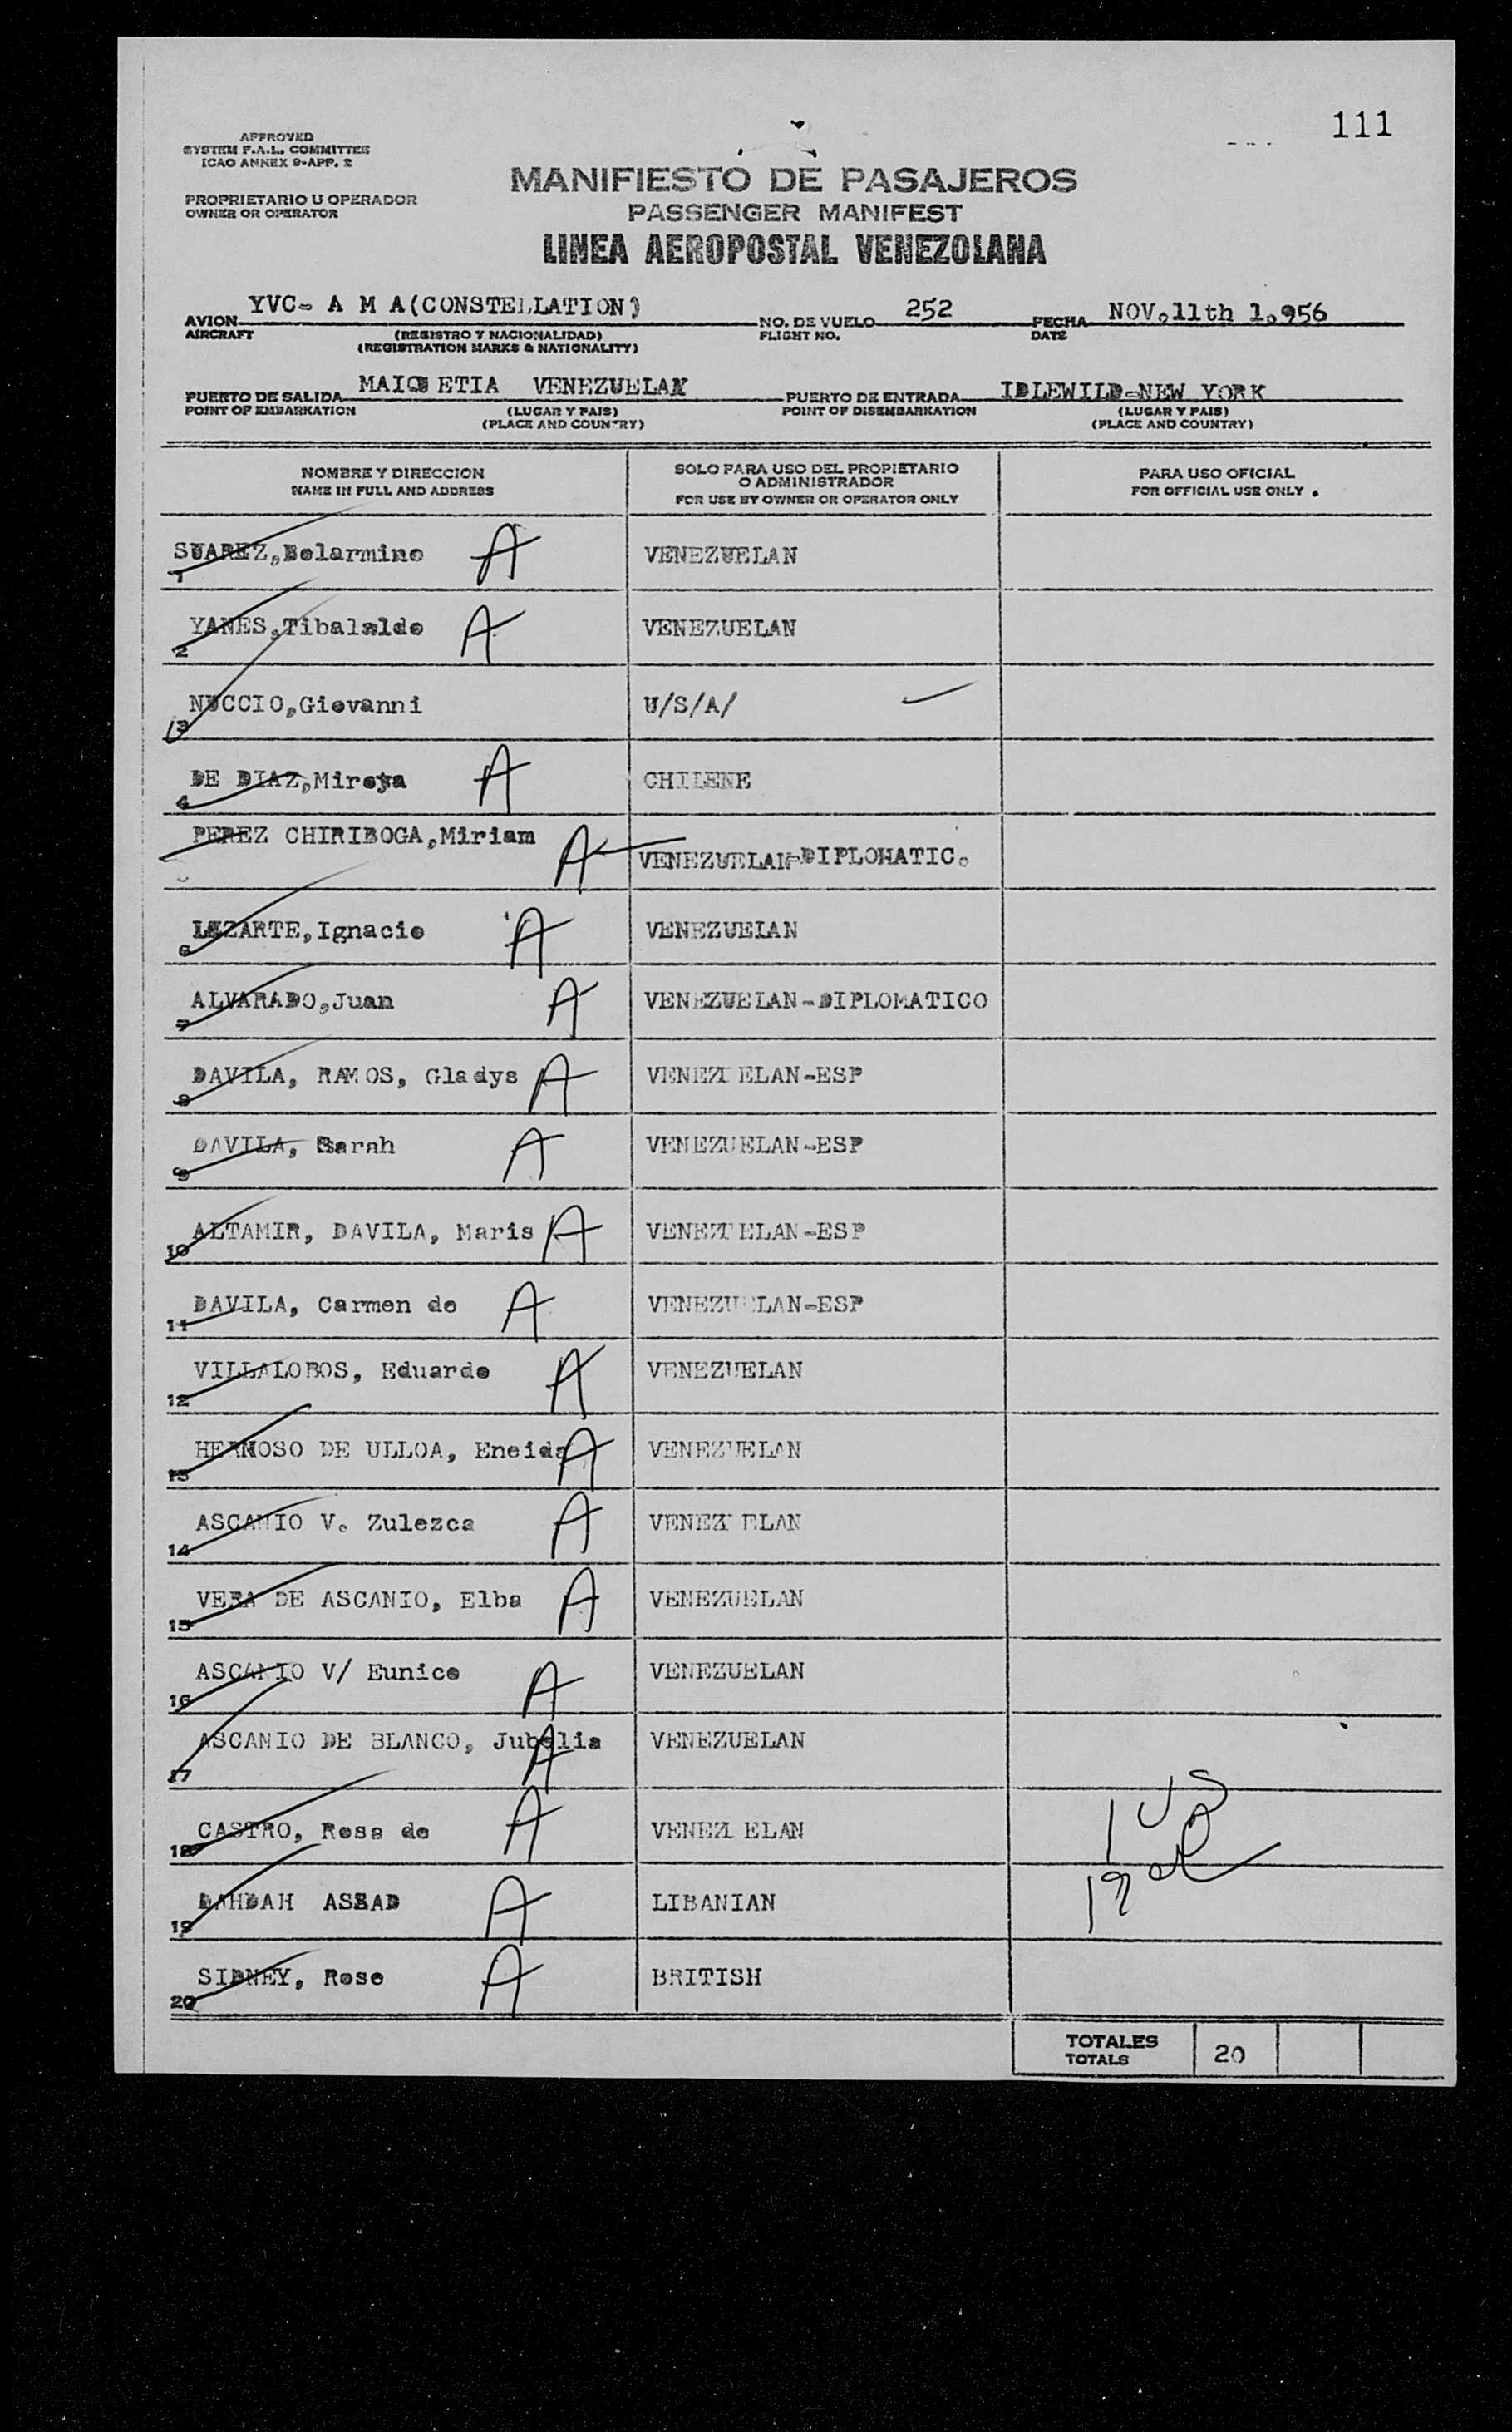 111
APPROVED
SYSTEM F.A.L. COMMITTEE
ICAO ANNEX 9-APP. 2
PROPRIETARIO U OPERADOR
OWNER OR OPERATOR
MANIFIESTO DE PASAJEROS
PASSENGER MANIFEST
LINEA AEROPOSTAL VENEZOLANA
AVION YVC- A M A(CONSTELLATION) NO. DE VUELO 252 FECHA NOV.11th 1.956
AIRCRAFT (REGISTRO Y NACIONALIDAD) FLIGHT NO. DATE
(REGISTRATION MARKS & NATIONALITY)
PUERTO DE SALIDA MAIQUETIA VENEZUELAN PUERTO DE ENTRADA IDLEWILD-NEW YORK
POINT OF EMBARKATION (LUGAR Y PAIS) POINT OF DISEMBARKATION (LUGAR Y PAIS)
(PLACE AND COUNTRY) (PLACE AND COUNTRY)
NOMBRE Y DIRECCION
NAME IN FULL AND ADDRESS
SOLO PARA USO DEL PROPIETARIO
O ADMINISTRADOR
FOR USE BY OWNER OR OPERATOR ONLY
PARA USO OFICIAL
FOR OFFICIAL USE ONLY
1 SUAREZ,Belarmino A VENEZUELAN
2 YANES,Tibalaldo A VENEZUELAN
3 NUCCIO,Giovanni U/S/A/
4 DE DIAZ,Mireya A CHILENE
PEREZ CHIRIBOGA,Miriam A VENEZUELAN-DIPLOMATIC.
6 LAZARTE,Ignacio A VENEZUELAN
7 ALVARADO,Juan A VENEZUELAN-DIPLOMATICO
8 DAVILA, RAMOS, Gladys A VENEZ ELAN-ESP
9 DAVILA, Sarah A VENEZUELAN-ESP
10 ALTAMIR, DAVILA, Maris A VENEZUELAN-ESP
11 DAVILA, Carmen de A VENEZUELAN-ESP
12 VILLALOBOS, Eduardo A VENEZUELAN
13 HERMOSO DE ULLOA, Eneida A VENEZUELAN
14 ASCANIO V. Zulezca A VENEZ ELAN
15 VERA DE ASCANIO, Elba A VENEZUELAN
16 ASCANIO V/ Eunice A VENEZUELAN
17 ASCANIO DE BLANCO, Jubelia A VENEZUELAN
18 CASTRO, Rosa de A VENEZ ELAN
1 US
19 DAHDAH ASSAD A LIBANIAN
19 al
20 SIDNEY, Rose A BRITISH
TOTALES 20
TOTALS